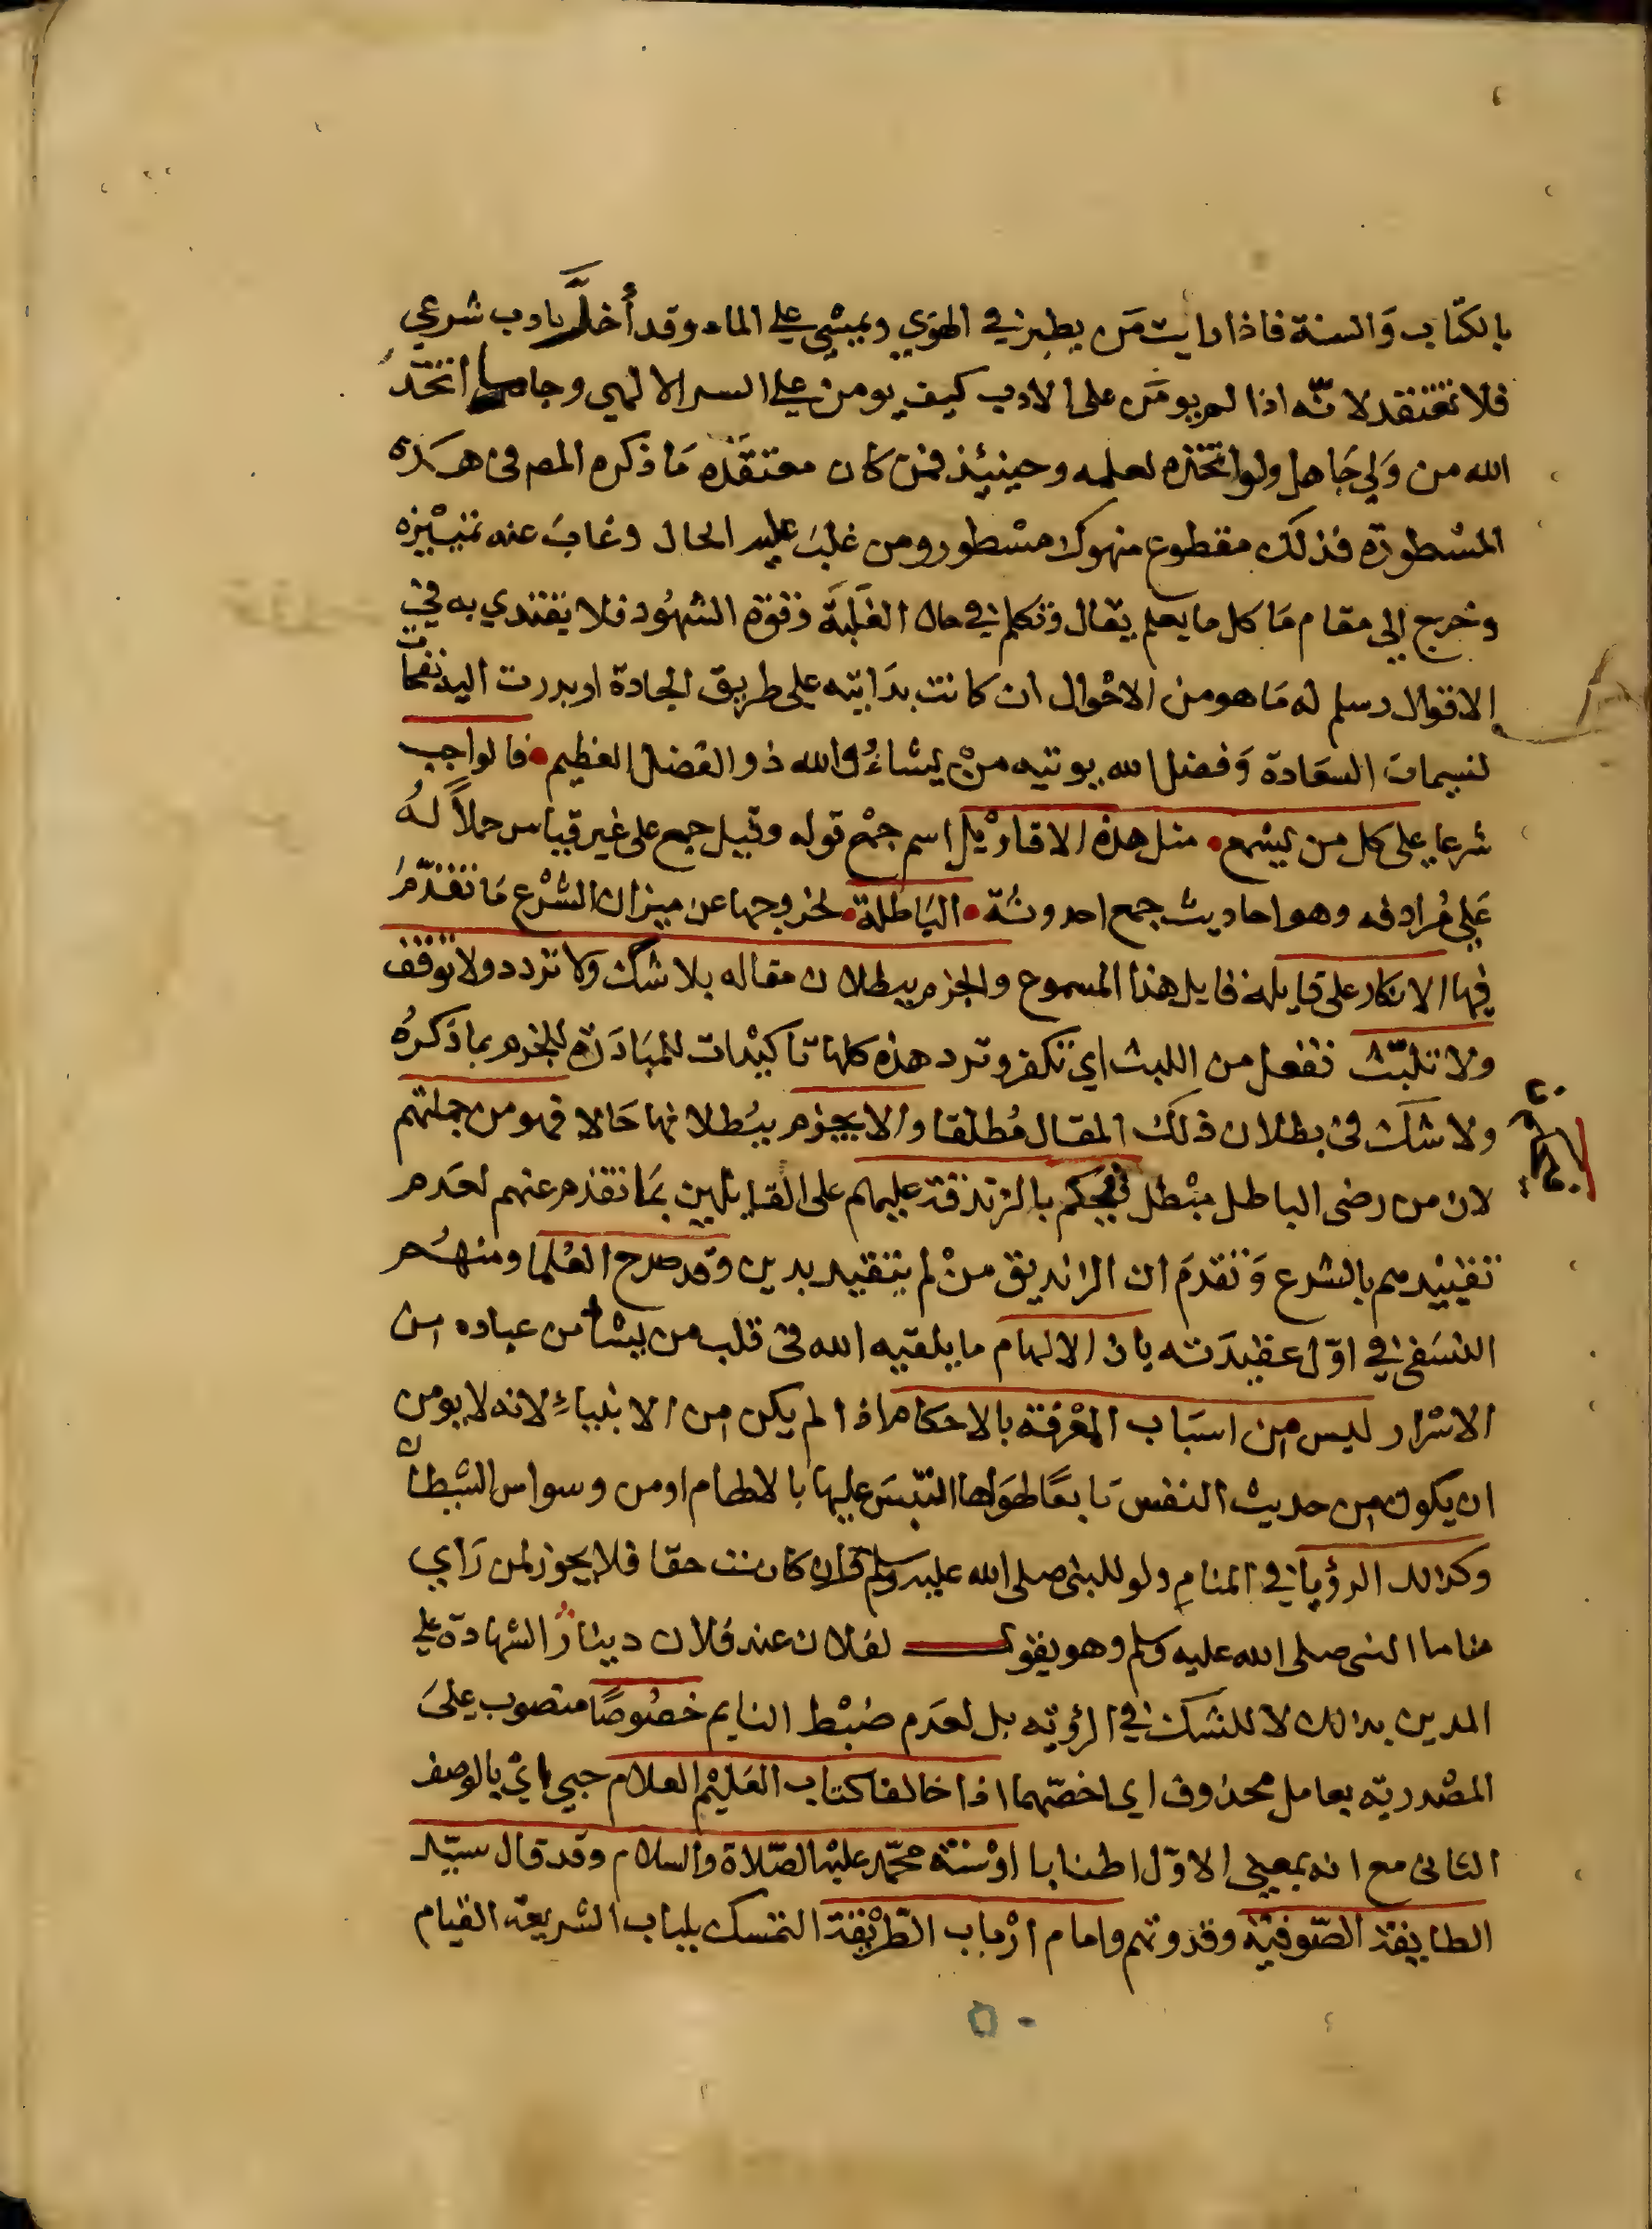 بالكتاب وَالسنة فاذا رايت مَن يطير في الهوي ويمشي علي الماء وقد أخلَّ بادب شرعي
فلا تعتقد لانّه اذا لم يومَن على الادب كيف يومن علي السر الالهي وجا ما اتخَذَ
الله من وَلي جَاهل ولو اتخذه لعلمه وحينئذ فمن كان معتقَده مَا ذكره المص فى هَذه
المسْطورَة فذلك مقطوع منهوك مسْطور ومن غلبَ عليه الحال وغابَ عنه تمييْزه
وخرج الي مقام مَا كل ما يعلم يقال وتكلم في حال الغَلبَة وقوة الشهُود فلا يقتدي به في
الاقوال وسلم له مَا هو من الاحْوال ان كانت بدَايته على طريق الجادة او بدرت اليه نفحات
نسيمات السعَادة وَفضل الله يوتيه منْ يشاءُ والله ذو الفضل العظيم فالواجب
شرعا علي كل من يسْمع مثل هذه الاقاوْيل اسم جمْع قوله وقيل جمع على غير قياس حملاً لهُ
عَلي مُرادفه وهو احاديث جمع احدوثَة الباطلة لخروجها عن ميزان الشرْع مَا تقدّمَ
فيها الانكار على قايله قايل هذا المسموع والجزم ببطلان مقاله بلا شك ولا تردد ولا توقف
ولا تلبّث تفعل من اللبث اي تكفر وترد هذه كلها تاكيْدات للمبَادَرة للجزم بما ذكرُه
ولا شك فى بطلان ذلك المقال مُطلقا والا يجزم ببُطلانها حَالا فهو من جملتهم
لان من رضى الباطل مبْطل فيحكم بالزندقة عليهم على القايلين بمَا تقدم عنهم لعَدم
تقييْدهم بالشرع وَتقدمَ ان الزانديق منْ لم يتقيد بدين وقد صرح العُلما ومنهُم
النسَفى في اوّل عقيدَته بان الالهام ما يلقيه الله فى قلب من يشا من عباده من
الاسْرار ليس من اسبَاب المعْرفة بالاحكام اذا لم يكن من الانبياءِ لانه لا يومن
ان يكون من حديث النفس تابعًا لهوَاها التبسَ عليها بالالهام او من وسواس الشيطان
وكذلك الرؤيا في المنامِ ولو للنبى صلى الله عليه وسلم فان كانت حقا فلا يجوز لمن رَاي
مناما النبى صلى الله عليه وسلم وهو يقول لفلان عند فلان دينارُ الشهادة علي
المدين بذلك لا للشك في الرؤيه بل لعَدم ضبْط النايم خصُوصًا منصوب عليَ
المصْدريّه بعامل محذوف اي اخصّهما اذا خالفا كتاب العَليْم العلام جيي بايْ بالوصف
الثانى مع انه بمعني الاوّل اطنابا اوْ سنة محمّد عليْه الصّلاة والسلام وقد قال سيّد
الطايفة الصّوفيّة وقدوتهم وامام ارْباب الطريْقة التمسك بلباب الشريعة القيام